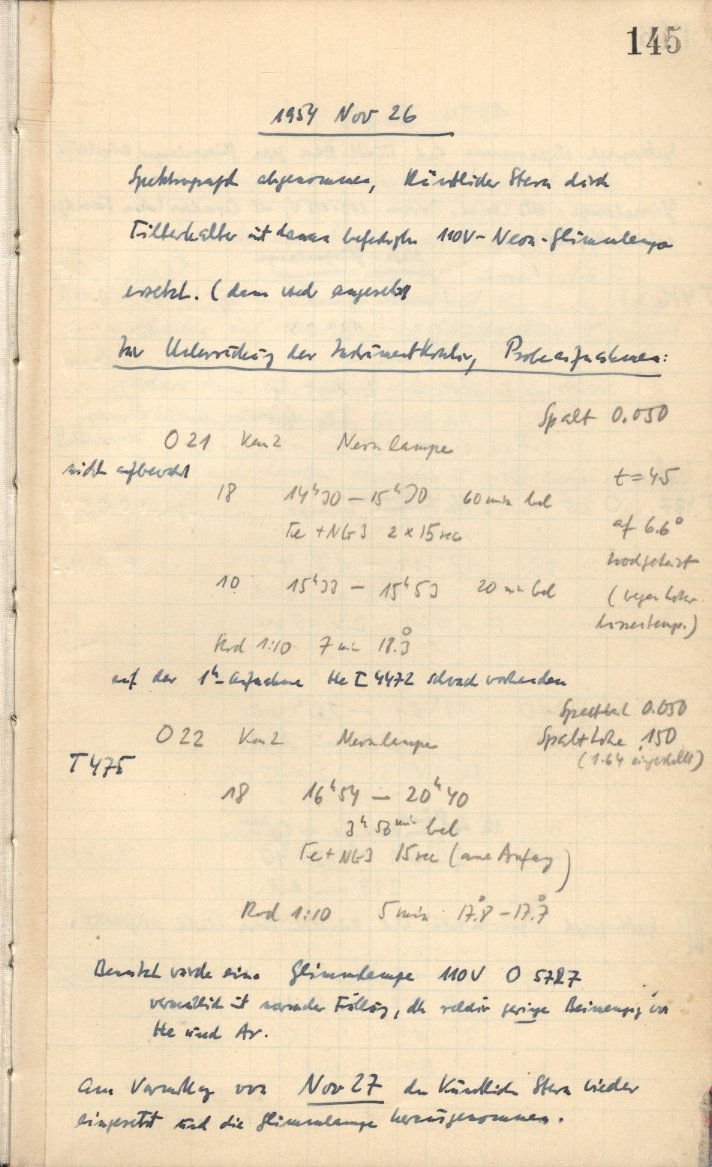 145
1954 Nov 26
Spektrograph abgenommen, Künstlicher Stern durch
Filterhalter mit daran befestigter 110V-Neon-Glimmlampe
ersetzt. (dann wieder angesetzt
Zur Untersuchung der Instrumentkontur, Probeaufnahmen:
Spalt 0.050
O 21 Kam 2 Neonlampe
nicht aufbewahrt
t = 4.5
18 14ʰ30 – 15ʰ30 60 min bel
auf 6.6°
Fe + NG3 2 × 15 sec
10 15ʰ33 – 15ʰ53 20 min bel
(wegen hoher
Wassertemp.)
Rod 1:10 7 min 18.°3
auf der 1ʰ-Aufnahme He I 4472 schwach vorhanden
0.050
O 22 Kam 2 Neonlampe
Spalthöhe 150
(1.64 eingestellt)
T 475
18 16ʰ54 – 20ʰ40
3ʰ 50ᵐⁱⁿ bel
Fe + NG3 15 sec (am Anfang)
Rod 1:10 5 min 17.°8 – 17.°7
Benutzt wurde eine Glimmlampe 110V O 5727
vermutlich mit normaler Füllung, dh relativ geringe Beimengung von
He und Ar.
Am Vormittag von Nov 27 den Künstlichen Stern wieder
eingesetzt und die Glimmlampe herausgenommen.